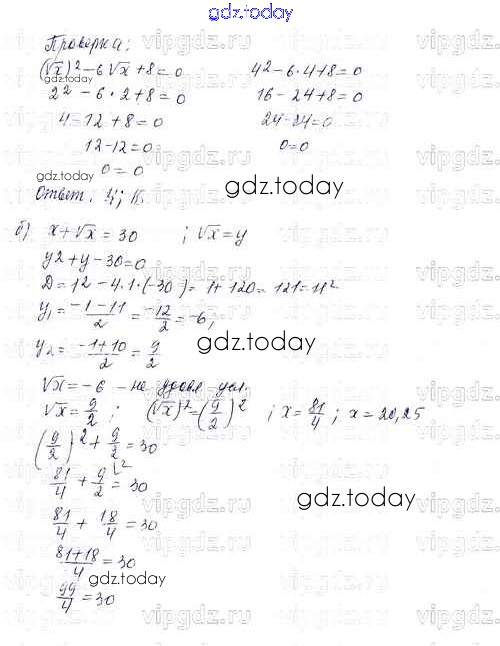 gdz.today
Проверка:
(√x)² - 6√x + 8 = 0
4² - 6·4 + 8 = 0
gdz.today
2² - 6·2 + 8 = 0
16 - 24 + 8 = 0
4 - 12 + 8 = 0
24 - 24 = 0
12 - 12 = 0
0 = 0
gdz.today
0 = 0
gdz.today
Ответ: 4;
б) x + √x = 30 ; √x = y
y2 + y - 30 = 0
D = 12 - 4·1·(-30) = 1 + 120 = 121 = 11²
y₁ = (-1 - 11)/2 = -12/2 = -6;
gdz.today
y₂ = (-1 + 10)/2 = 9/2
√x = -6 - не удовл. усл.
√x = 9/2 ; (√x)² = (9/2)² ; x = 81/4 ; x = 20,25
(9/2)² + 9/2 = 30
81/4 + 9/2 = 30
gdz.today
81/4 + 18/4 = 30
(81+18)/4 = 30
gdz.today
99/4 = 30
vipgdz.ru